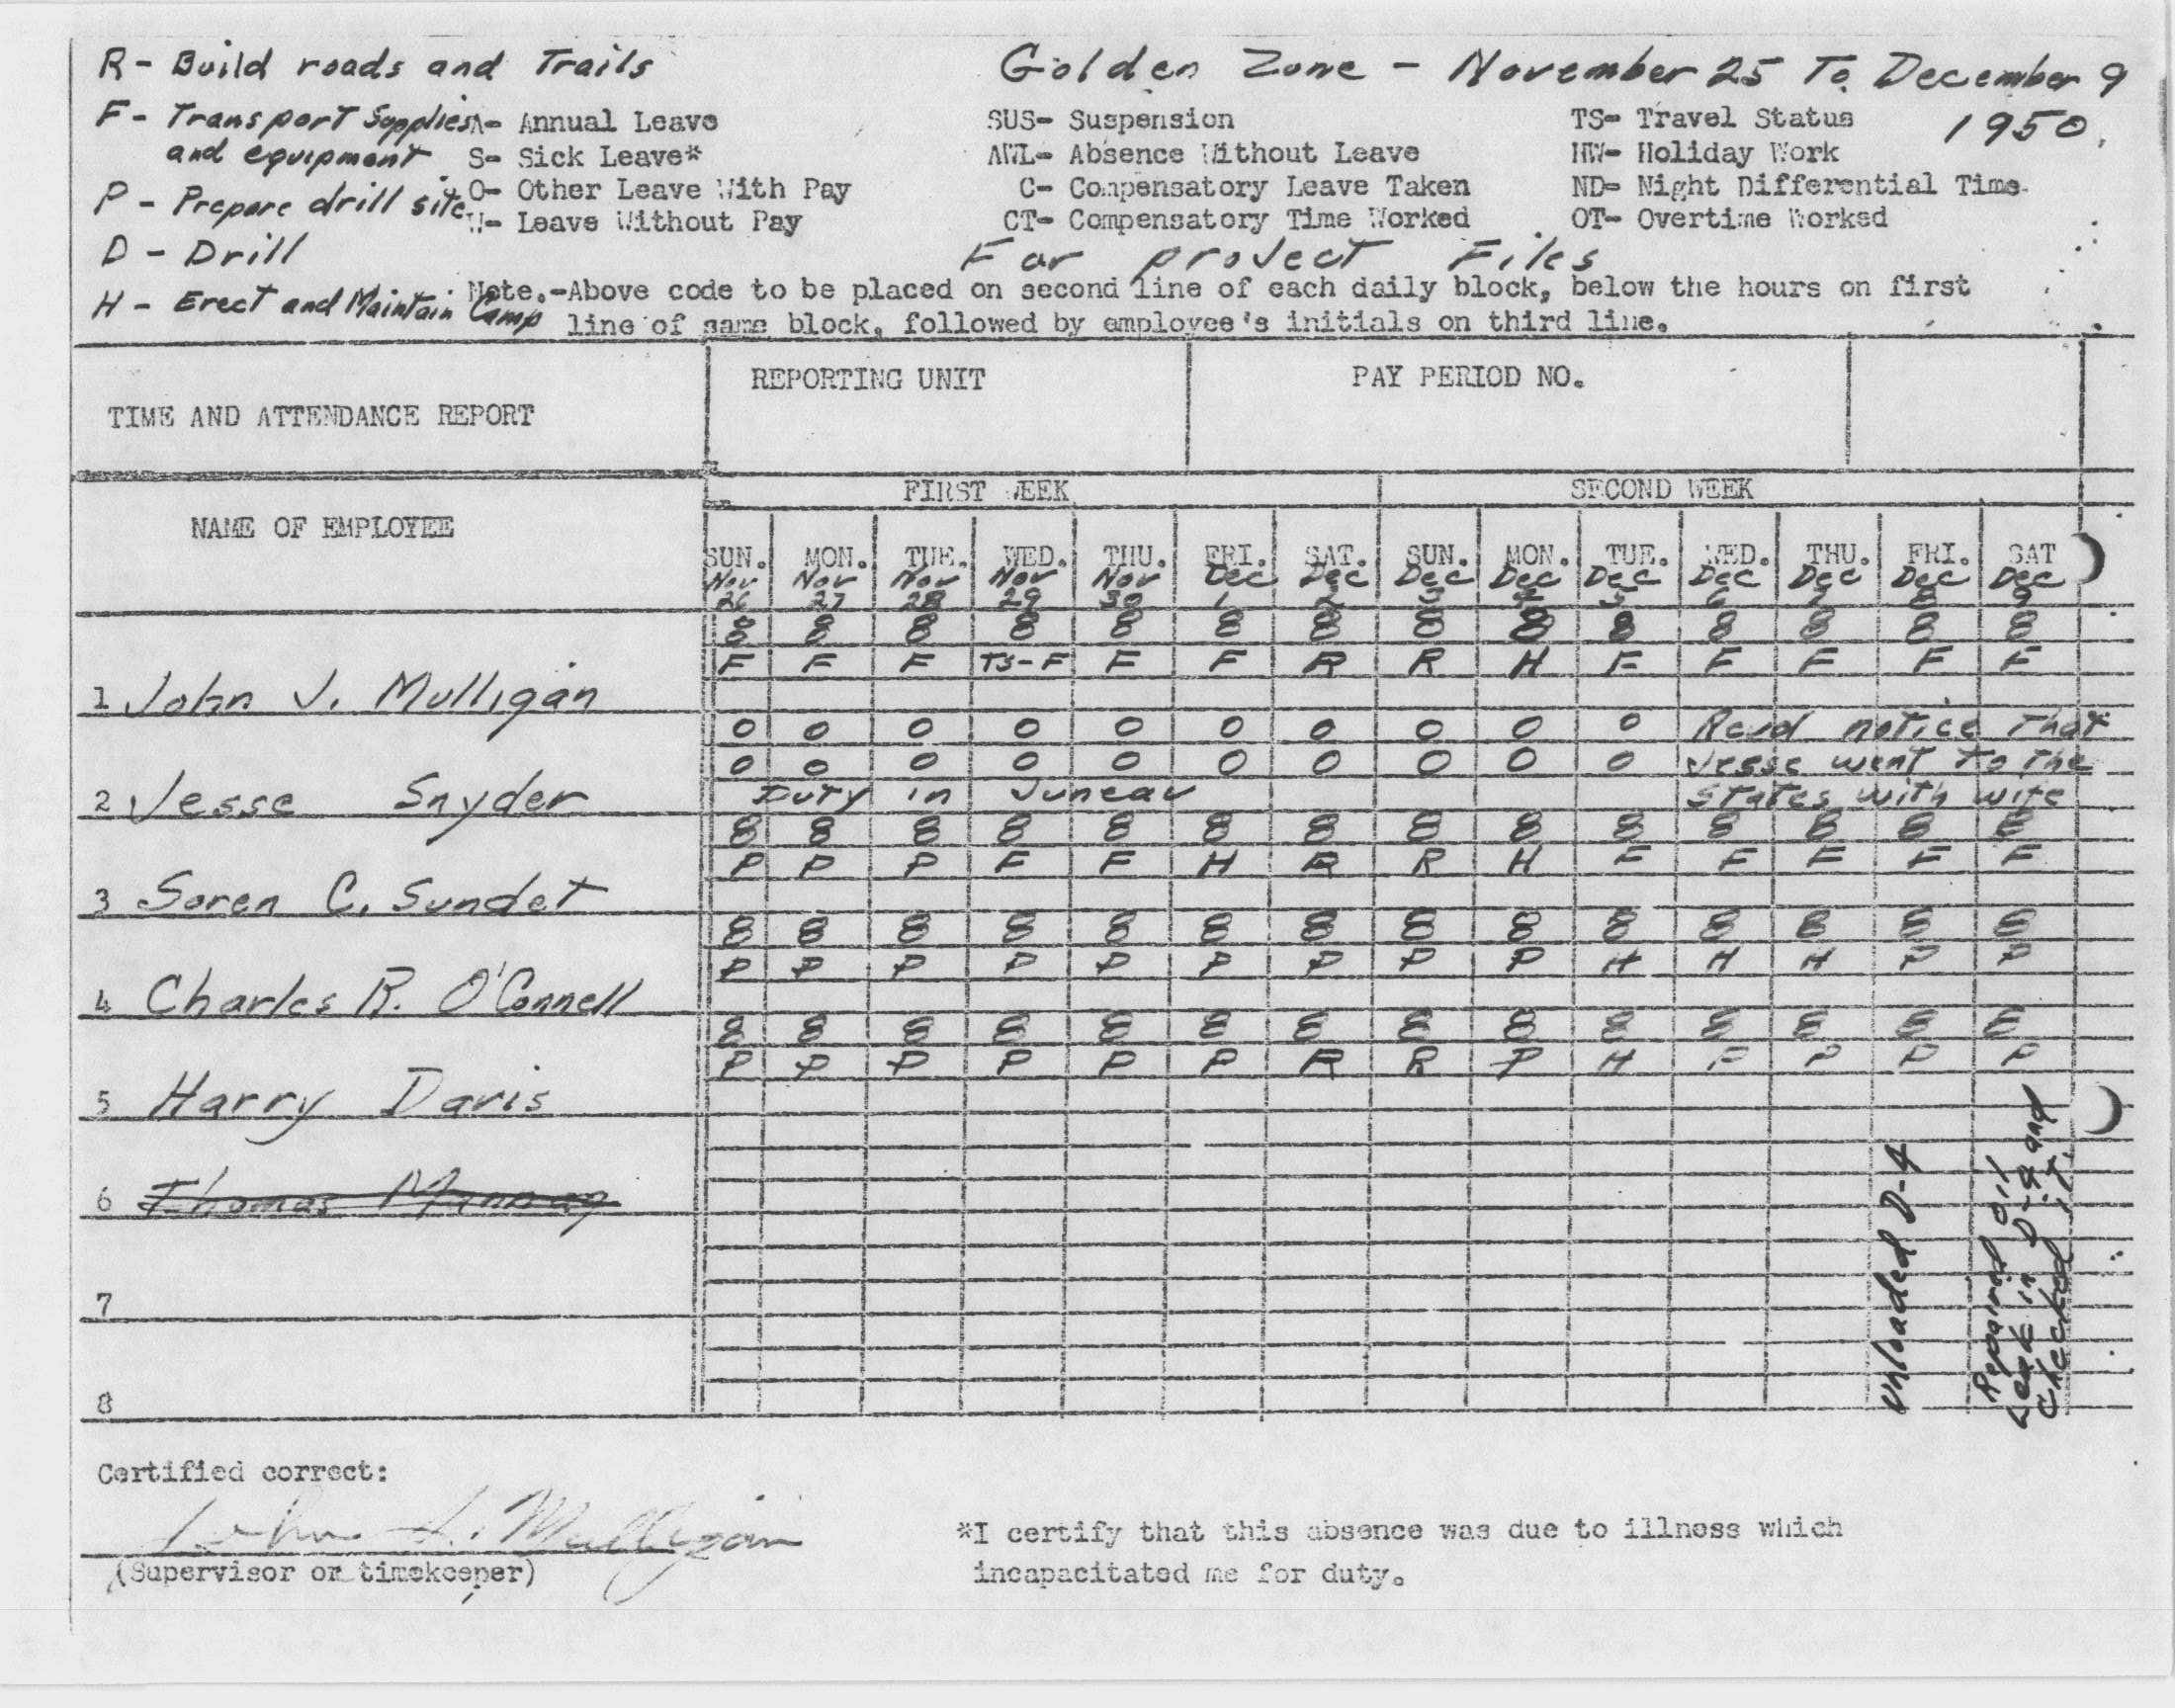 R - Build roads and Trails
Golden Zone - November 25 To December 9
1950.
F - Transport Supplies
and equipment
P - Prepare drill site
D - Drill
H - Erect and Maintain Camp
A- Annual Leave
S- Sick Leave*
O- Other Leave With Pay
W- Leave Without Pay
SUS- Suspension
AWL- Absence Without Leave
C- Compensatory Leave Taken
CT- Compensatory Time Worked
TS- Travel Status
HW- Holiday Work
ND- Night Differential Time
OT- Overtime Worked
For project Files
Note.-Above code to be placed on second line of each daily block, below the hours on first
line of same block, followed by employee's initials on third line.
TIME AND ATTENDANCE REPORT
REPORTING UNIT
PAY PERIOD NO.
NAME OF EMPLOYEE
FIRST WEEK SECOND WEEK
SUN. MON. TUE. WED. THU. FRI. SAT. SUN. MON. TUE. WED. THU. FRI. SAT
Nov Nov Nov Nov Nov Dec Dec Dec Dec Dec Dec Dec Dec Dec
26 27 28 29 30 1 2 3 4 5 6 7 8 9
8 8 8 8 8 8 8 8 8 8 8 8 8 8
F F F TS-F F F R R H F F F F F
1 John J. Mulligan
0 0 0 0 0 0 0 0 0 0 Read notice that
0 0 0 0 0 0 0 0 0 0 Jesse went to the
Duty in Juneau States with wife
2 Jesse Snyder
8 8 8 8 8 8 8 8 8 8 8 8 8 8
P P P F F H R R H F F F F F
3 Soren C. Sundet
8 8 8 8 8 8 8 8 8 8 8 8 8 8
P P P P P P P P P H H H P P
4 Charles R. O'Connell
8 8 8 8 8 8 8 8 8 8 8 8 8 8
P P P P P P R R P H P P P P
5 Harry Davis
6 Thomas
7
8
Unloaded D-4
Repaired oil
Leak in D-4 and
checked it.
Certified correct:
John J. Mulligan
(Supervisor or timekeeper)
*I certify that this absence was due to illness which
incapacitated me for duty.